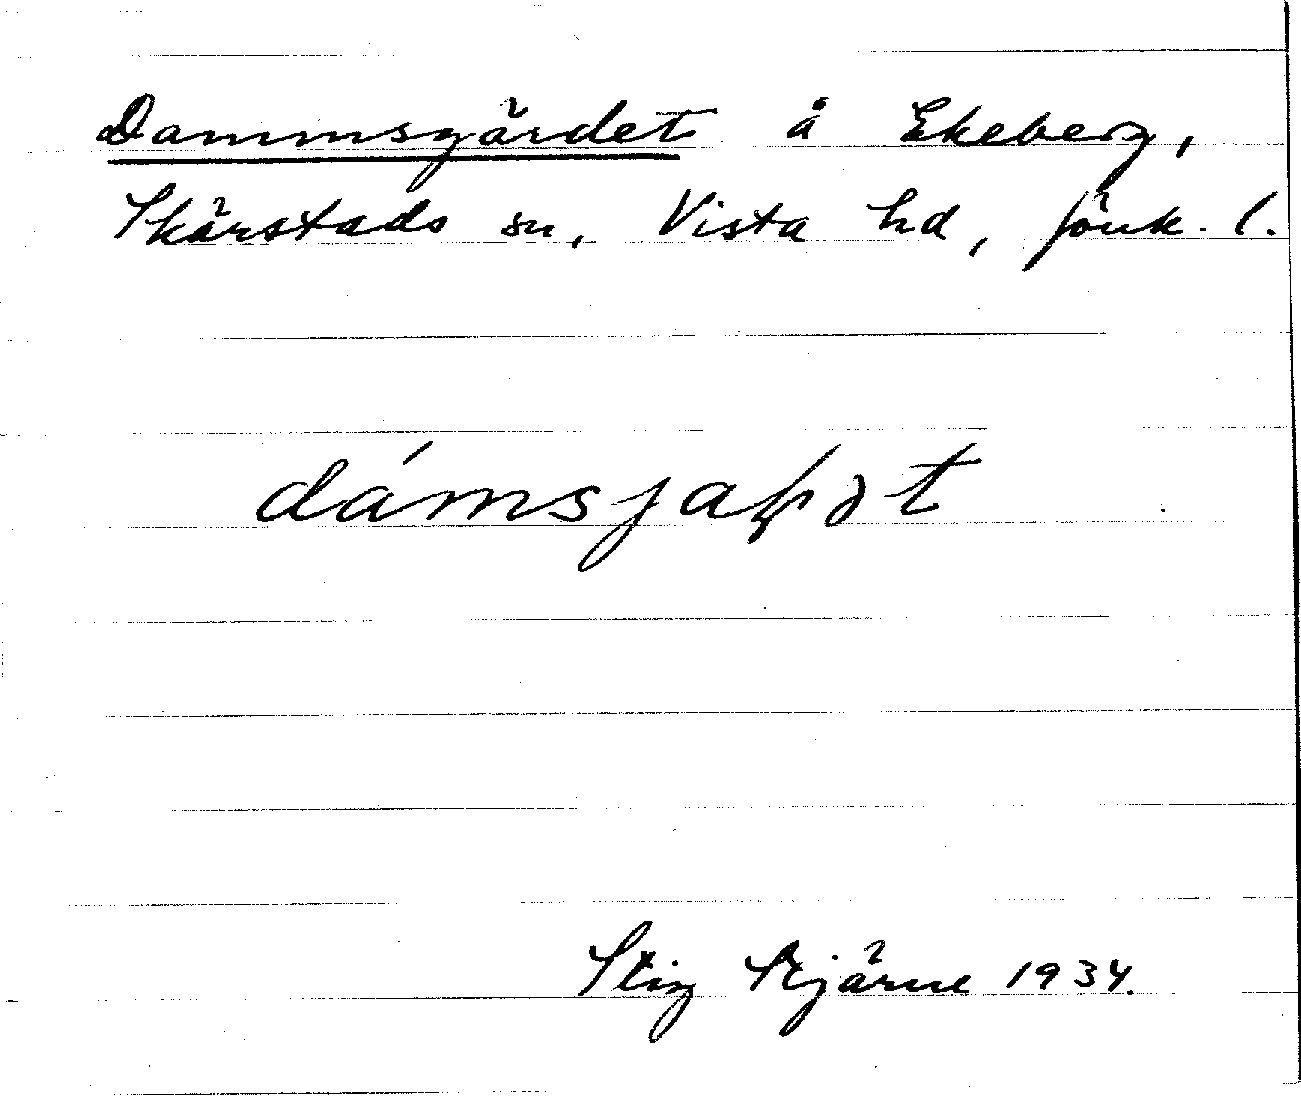 Dammsgärdet å Ekeberg,
Skärstads sn, Vista hd, Jönk. l.
Stig Stjärne 1934.